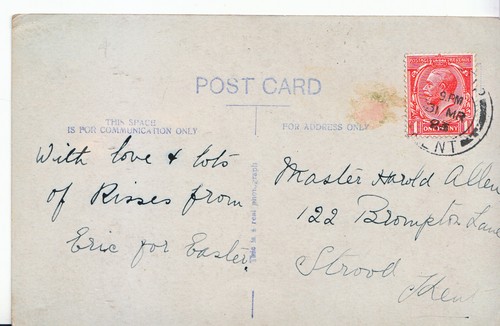 POST CARD
THIS SPACE
IS FOR COMMUNICATION ONLY
FOR ADDRESS ONLY
With love & lots
of Kisses from
Eric for Easter.
This is a real photograph
Master Harold Allen
122 Brompton Lane
Strood
Kent
POSTAGE REVENUE
1 ONE PENNY 1
9 PM
31 MR
ENT